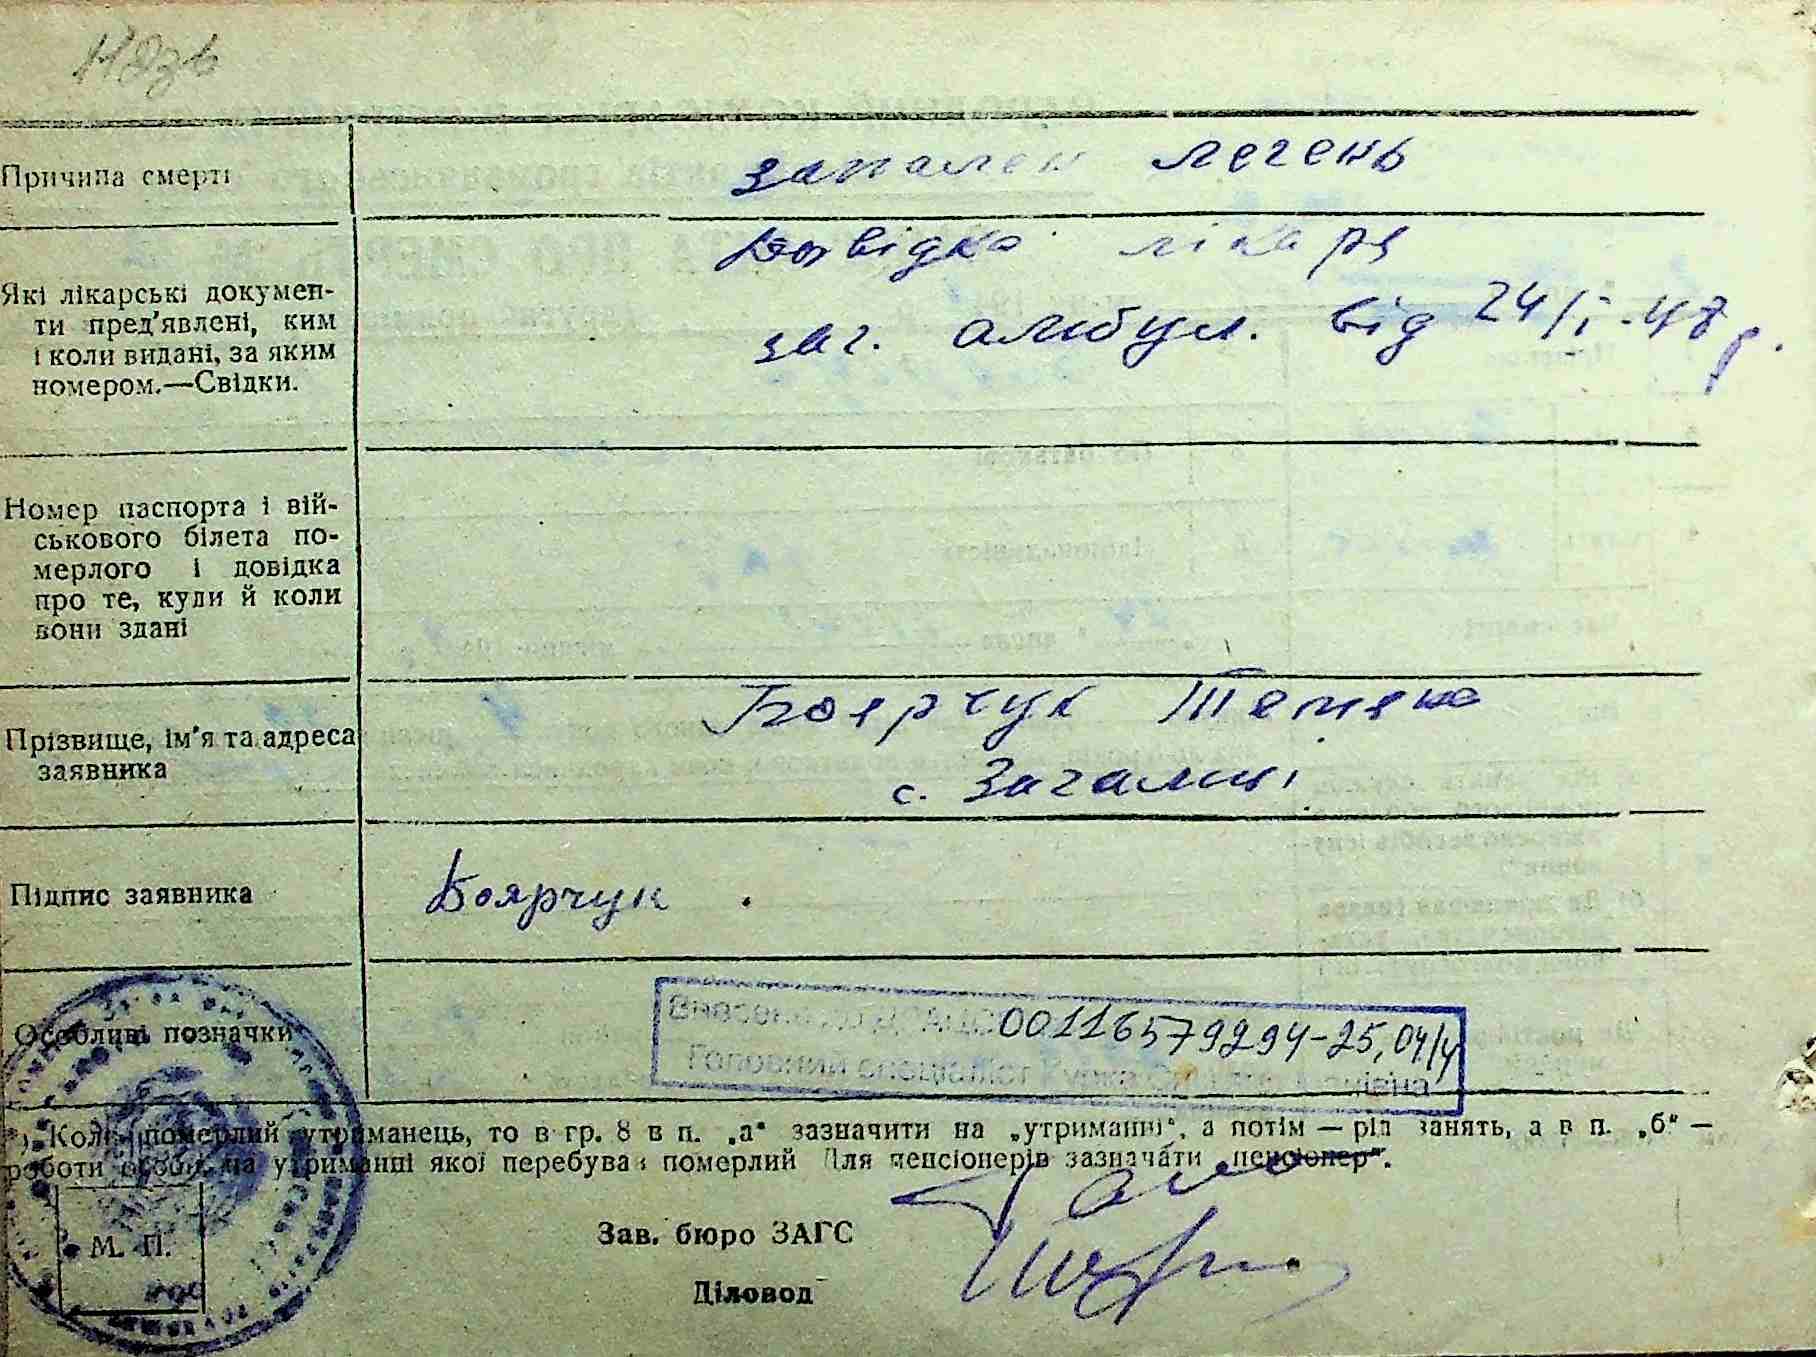 Причина смерті
запален легень
Які лікарські докумен-
ти пред'явлені, ким
і коли видані, за яким
номером.—Свідки.
Довідка лікаря
заг. амбул. від 24/I-48 р.
Номер паспорта і вій-
ськового білета по-
мерлого і довідка
про те, куди й коли
вони здані
Прізвище, ім'я та адреса
заявника
Боярчук Тетяна
с. Загальці
Підпис заявника
Боярчук.
Особливі позначки
00116579294-25,04/4
Головний спеціаліст
*) Коли померлий утриманець, то в гр. 8 в п. „а“ зазначити на „утриманні“, а потім — рід занять, а в п. „б“ —
роботи особи, на утриманні якої перебував померлий Для пенсіонерів зазначати „пенсіонер“.
Зав. бюро ЗАГС
М. П.
Діловод